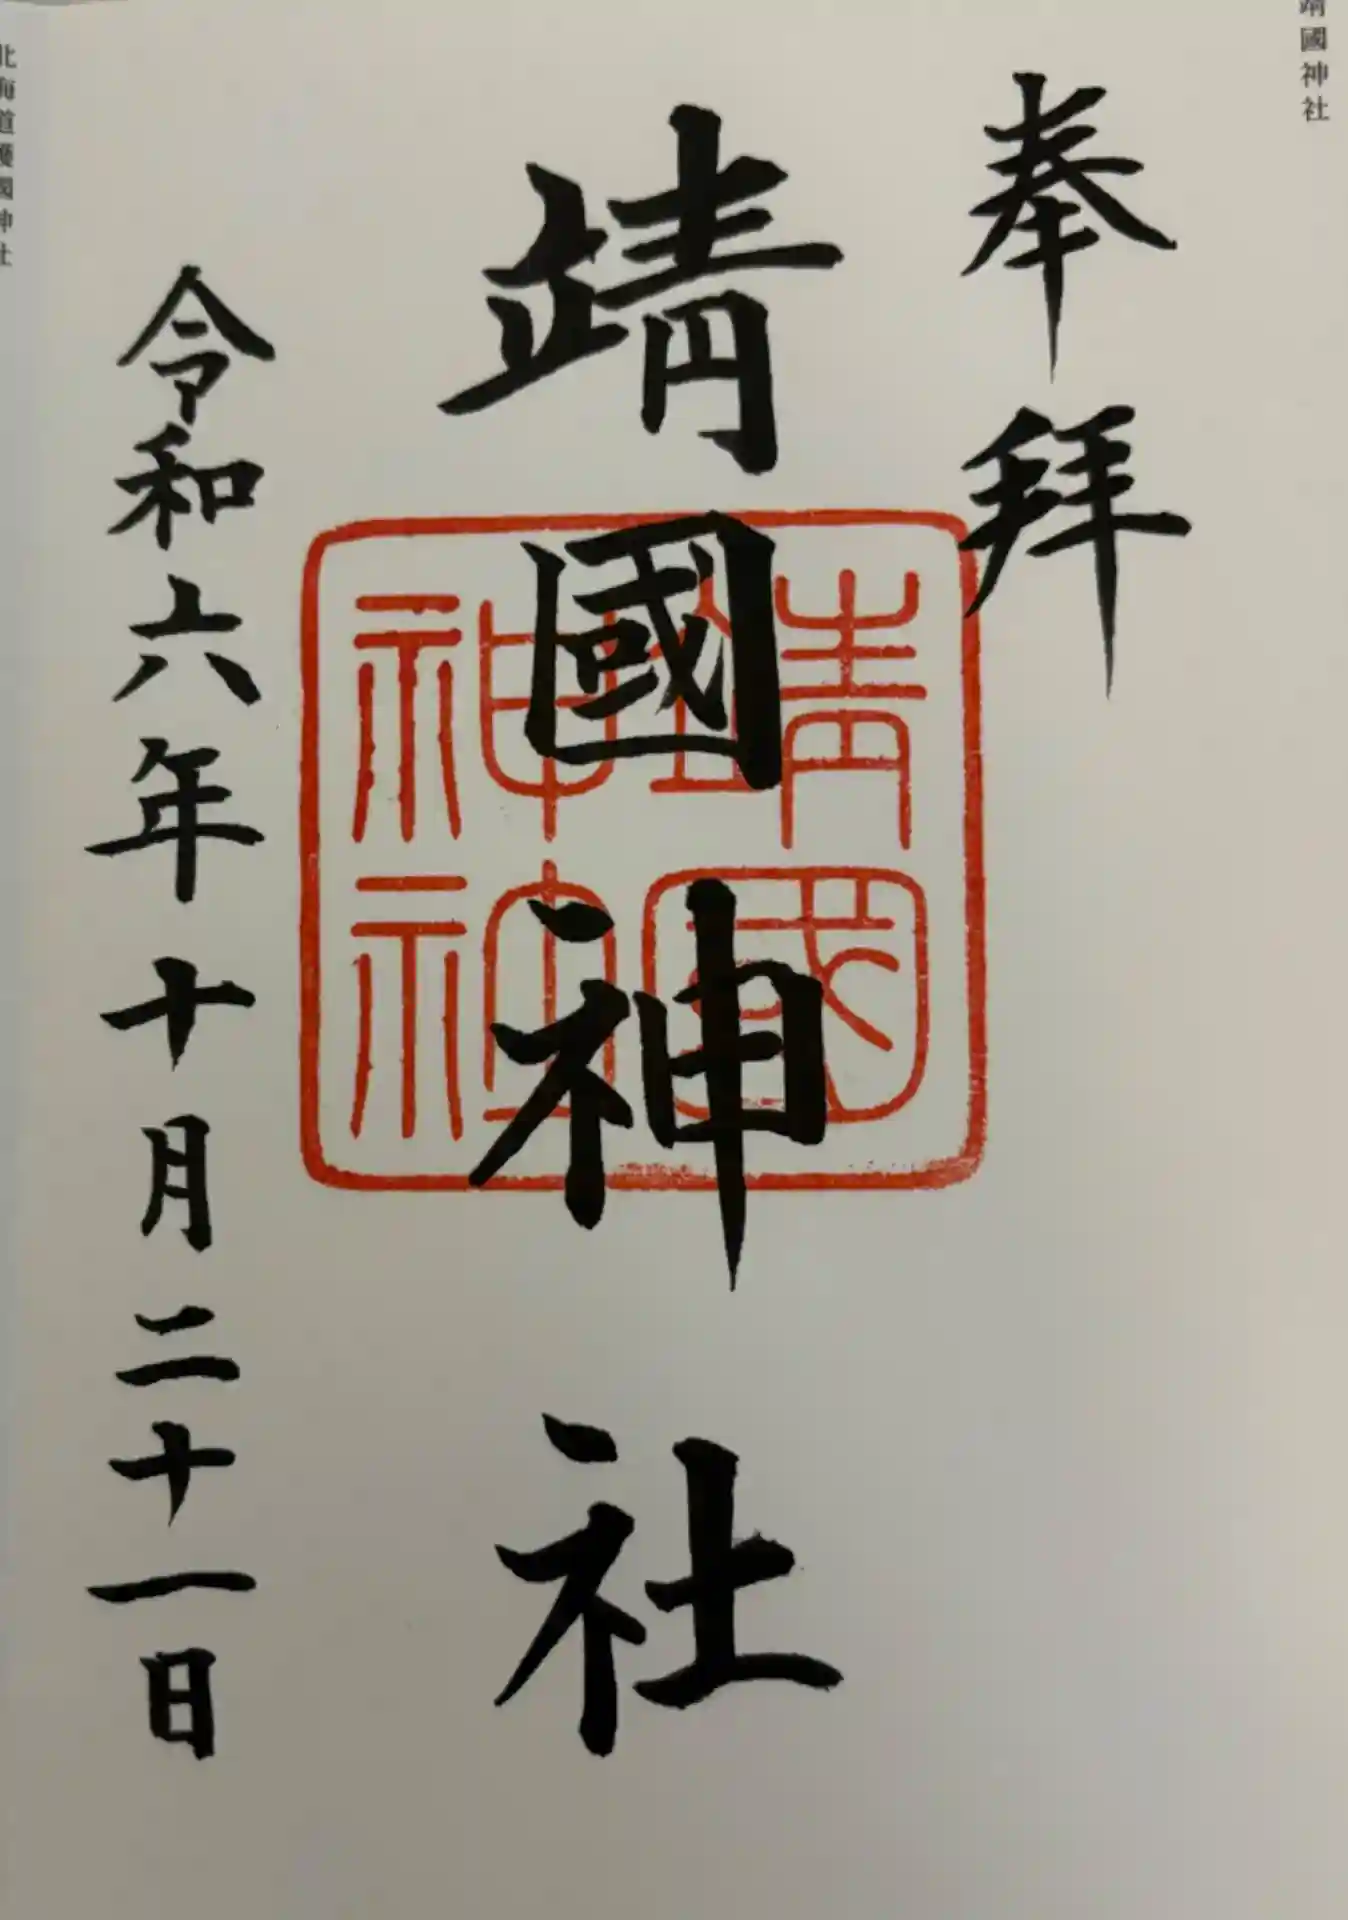 靖國神社
奉拝
靖國神社
靖國
神社
令和六年十月二十一日
北海道護國神社